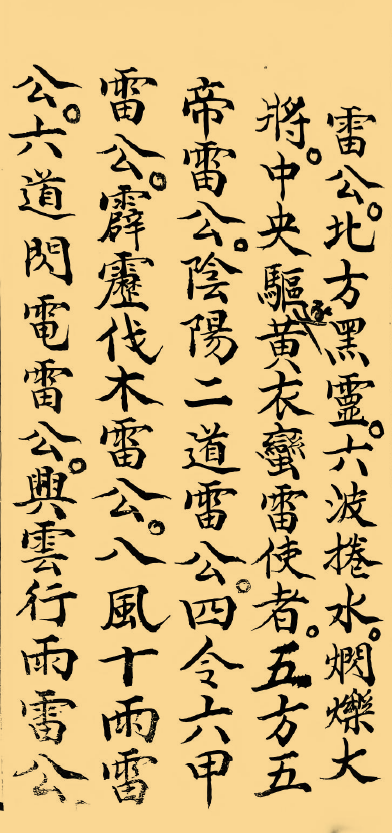 雷公。北方黑靈。六波捲水。燗爍大
將。中央驅黃衣蠻雷使者。五方五
帝雷公。陰陽二道雷公。四令六甲
雷公。霹靂伐木雷公。八風十雨雷
公。六道閃電雷公。興雲行雨雷公